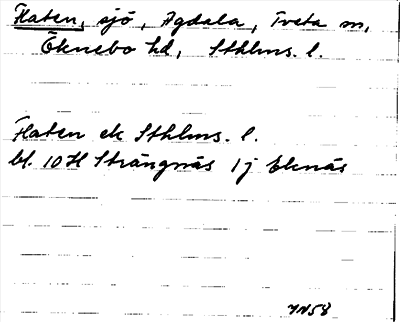 Flaten, sjö, Agdala, Tveta sn,
Öknebo hd, Sthlms. l.
Flaten ek Sthlms. l.
bl. 10 H Strängnäs 1j Eknäs